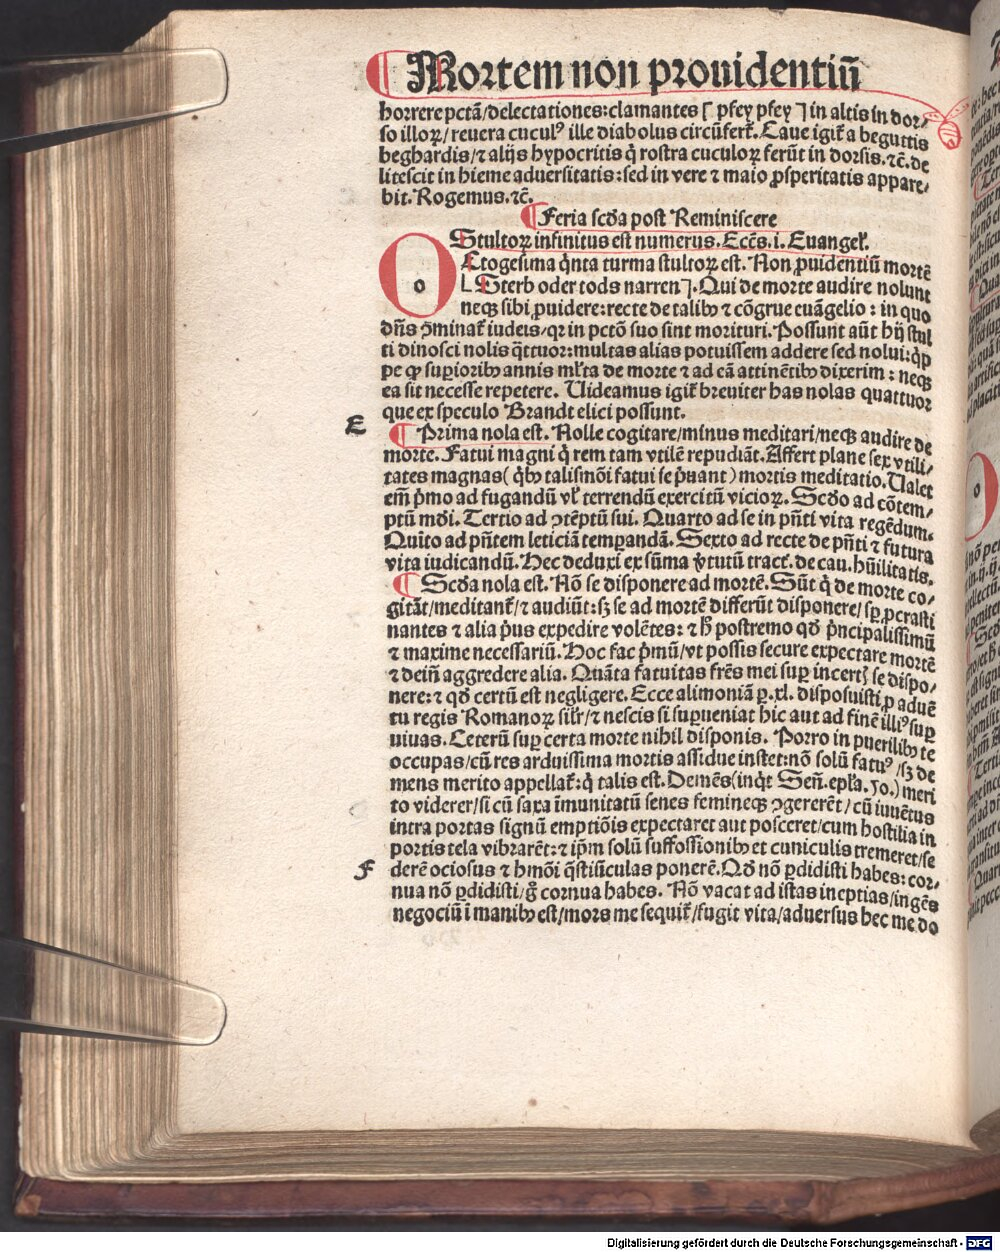 ¶ Mortem non prouidentiū
horrere pctā/delectationes:clamantes ⌈ pfey pfey ⌉ in altis in dor⸗
so illoꝝ/reuera cuculꝰ ille diabolus circūfert᷑. Caue igit᷑ a beguttis
beghardis/⁊ alijs hypocritis q̄ rostra cuculoꝝ ferūt in dorsis.⁊c̄.de
litescit in hieme aduersitatis:sed in vere ⁊ maio ꝓsperitatis appare⸗
bit. Rogemus.⁊c̄.
¶ Feria scd̄a post Reminiscere
Stultoꝝ infinitus est numerus. Ecc̄s.i. Euangel'.
O o Ctogesima q̄nta turma stultoꝝ est. Non ꝓuidentiū mortē
⌊ Sterb oder tods narren ⌉. Qui de morte audire nolunt
neqꝫ sibi ꝓuidere:recte de talibꝫ ⁊ cōgrue euāgelio : in quo
dn̄s ꝯminat᷑ iudeis/qꝛ in pctō suo sint morituri. Possunt aūt hij stul
ti dinosci nolis q̄ttuor:multas alias potuissem addere sed nolui:q̄ꝓ
pe ꝙ suꝑioribꝫ annis ml'ta de morte ⁊ ad eā attinētibꝫ dixerim : neqꝫ
ea sit necesse repetere. Uideamus igit᷑ breuiter has nolas quattuor
que ex speculo Brandt elici possunt.
E
¶ Prima nola est. Nolle cogitare/minus meditari/neqꝫ audire de
morte. Fatui magni q̄ rem tam vtilē repudiāt. Affert plane sex vtili⸗
tates magnas( q̄bꝫ talismōi fatui se p̄uant ) mortis meditatio. Ualet
em̄ p̄mo ad fugandū vl' terrendū exercitū vicioꝝ. Scd̄o ad cōtem⸗
ptū mūdi. Tertio ad ꝯtēptū sui. Quarto ad se in pn̄ti vita regēdum.
Quīto ad pn̄tem leticiā temꝑandā. Sexto ad recte de pn̄ti ⁊ futura
vita iudicandū. Hec deduxi ex sūma v̄tutū tract. de cau. hūilitatis.
¶ Scd̄a nola est. Nō se disponere ad mortē. Sūt q̄ de morte co⸗
gitāt/meditant᷑/⁊ audiūt:sꝫ se ad mortē differūt disponere/sꝑ ꝓcrasti
nantes ⁊ alia p̄us expedire volētes: ⁊ h̄ postremo qd̄ p̄ncipalissimū
⁊ maxime necessariū. Hoc fac p̄mū/vt possis secure expectare mortē
⁊ dein̄ aggredere alia. Quāta fatuitas fr̄es mei suꝑ incert᷑ se dispo⸗
nere:⁊ qd̄ certū est negligere. Ecce alimoniā ꝑ.xl. disposuisti ꝓ aduē
tu regis Romanoꝝ sil'r/⁊ nescis si suꝑueniat hic aut ad finē illiꝰ suꝑ
uiuas. Ceterū suꝑ certa morte nihil disponis. Porro in puerilibꝫ te
occupas/cū res arduissima mortis assidue instet:nō solū fatuꝰ/sꝫ de
mens merito appellat᷑:q̄ talis est. Demēs(inq̄t Sen̄.epl'a.50.) meri
to viderer/si cū saxa īmunitatū senes femineqꝫ ꝯgererēt/ cū iuuētus
intra portas signū emptiōis expectaret aut posceret/cum hostilia in
portis tela vibrarēt:⁊ ip̄m solū suffossionibꝫ et cuniculis tremeret/se
F
derē ociosus ⁊ hmōi q̄stiūculas ponerē. Qd̄ nō ꝑdidisti habes: cor⸗
nua nō ꝑdidisti/g̊ cornua habes. Nō vacat ad istas ineptias/ingēs
negociū i manibꝫ est/mors me sequit᷑/fugit vita/aduersus hec me do
Digitalisierung gefördert durch die Deutsche Forschungsgemeinschaft - DFG